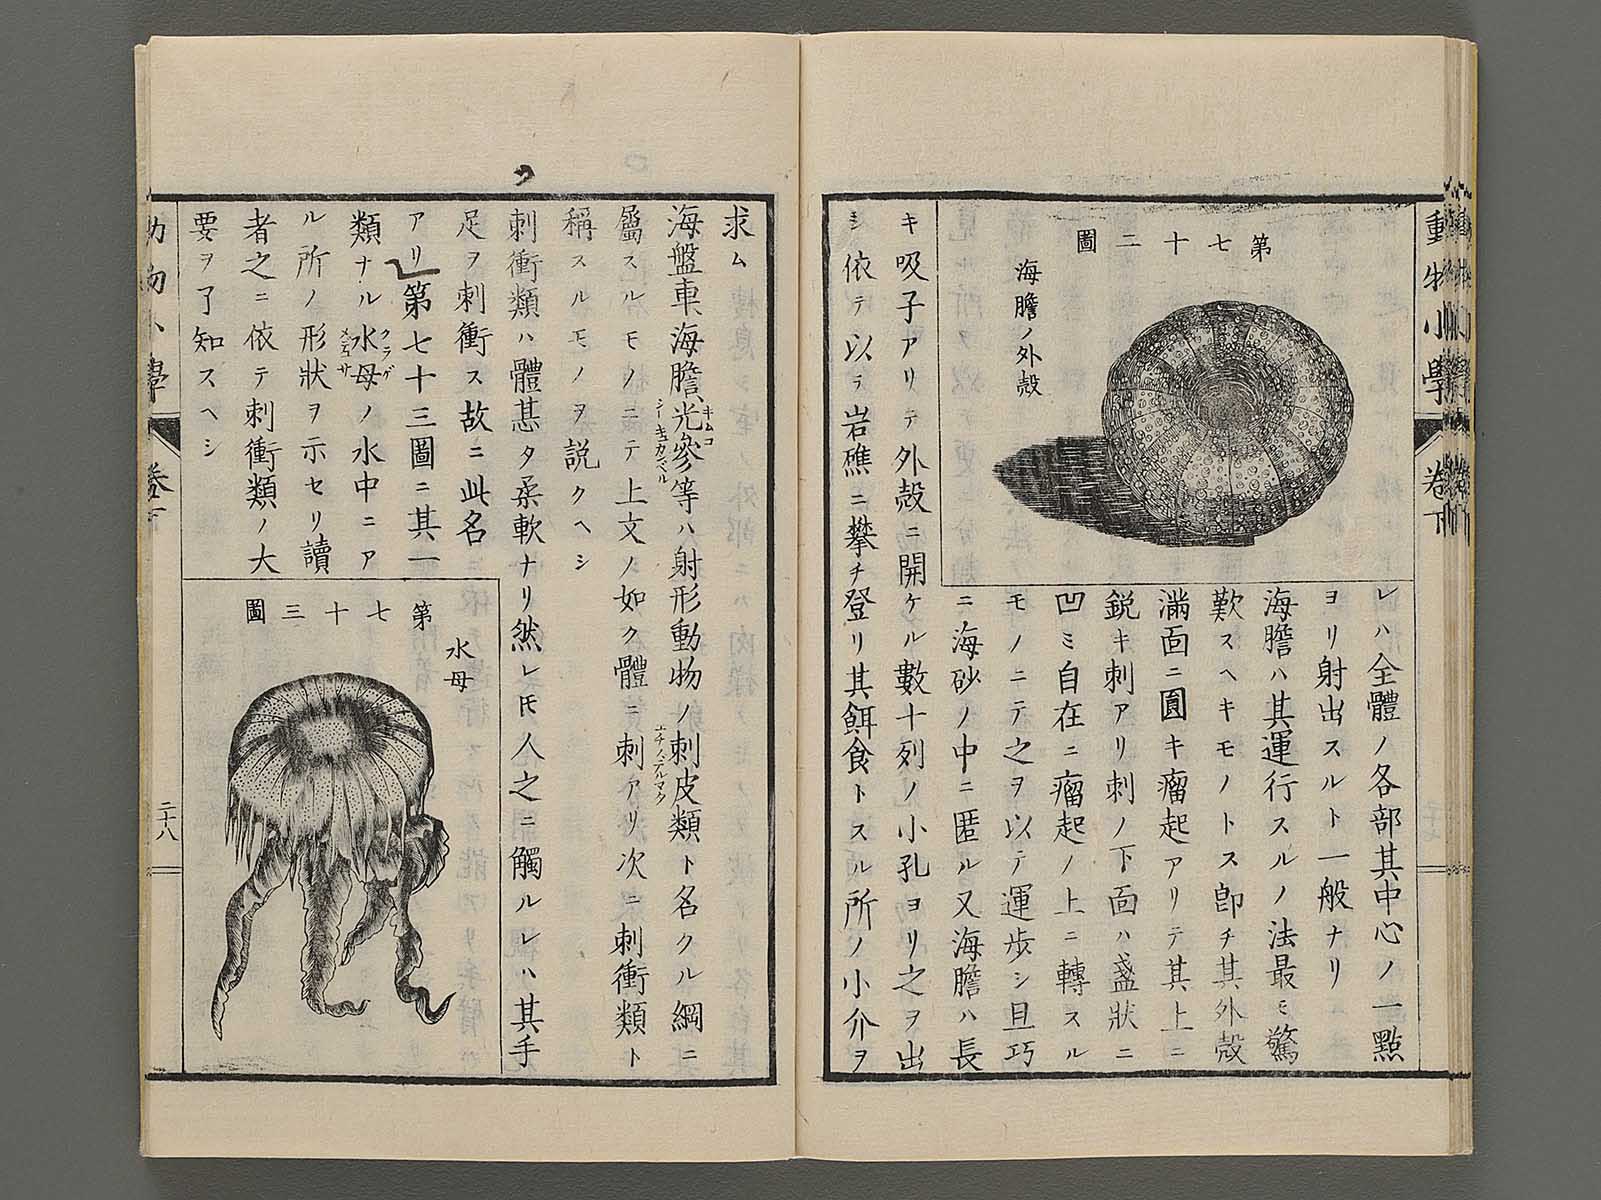 動物小學
卷下
第七十二圖
海膽ノ外殼
レハ全體ノ各部其中心ノ一點
ヨリ射出スルト一般ナリ
海膽ハ其運行スルノ法最モ驚
歎スヘキモノトス卽チ其外殼
滿面ニ圓キ瘤起アリテ其上ニ
鋭キ刺アリ刺ノ下面ハ盞狀ニ
凹ミ自在ニ瘤起ノ上ニ轉スル
モノニテ之ヲ以テ運歩シ且巧
ニ海砂ノ中ニ匿ル又海膽ハ長
キ吸子アリテ外殼ニ開ケル數十列ノ小孔ヨリ之ヲ出
シ依テ以テ岩礁ニ攀チ登リ其餌食トスル所ノ小介ヲ
求ム
海盤車海膽光參等ハ射形動物ノ刺皮類ト名クル綱ニ
キムコ
シーキユカンベル
エチノデルマタ
屬スルモノニテ上文ノ如ク體ニ刺アリ次ニ刺衝類ト
稱スルモノヲ説クヘシ
刺衝類ハ體甚タ柔軟ナリ然レ𪜈人之ニ觸ルレハ其手
足ヲ刺衝ス故ニ此名
アリ第七十三圖ニ其一
類ナル水母ノ水中ニア
クラゲ
メジユサ
ル所ノ形狀ヲ示セリ讀
者之ニ依テ刺衝類ノ大
要ヲ了知スヘシ
第七十三圖
水母
動物小學
卷下
二十八